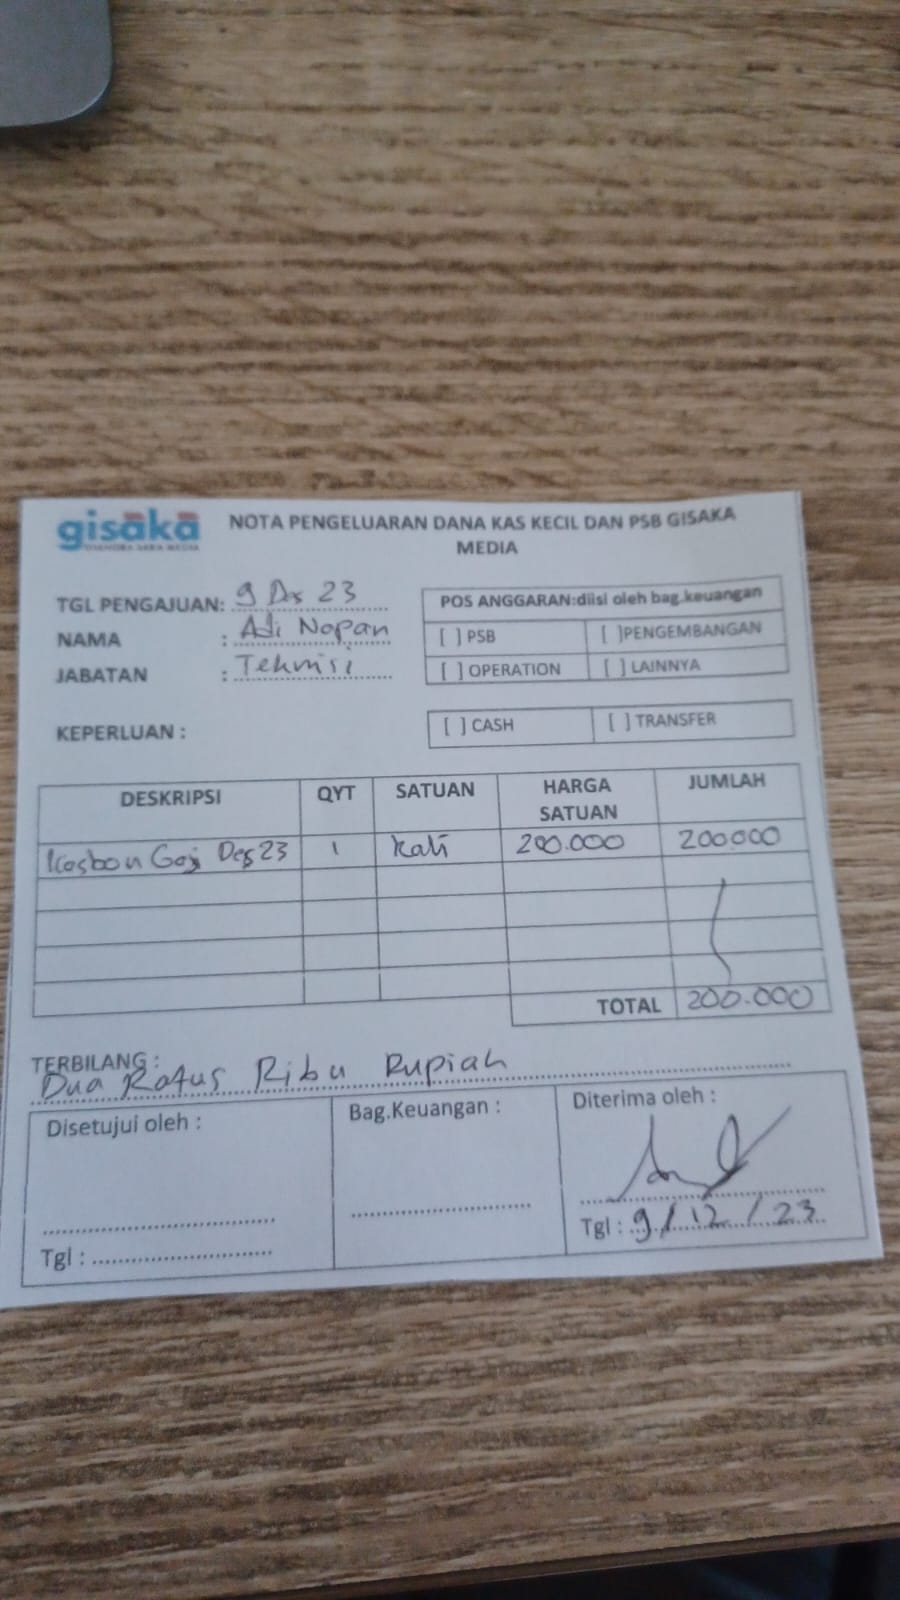 gisaka
NOTA PENGELUARAN DANA KAS KECIL DAN PSB GISAKA
MEDIA
TGL PENGAJUAN: 9 Des 23
NAMA : Adi Nopan
JABATAN : Teknisi
POS ANGGARAN:diisi oleh bag.keuangan
[ ] PSB [ ]PENGEMBANGAN
[ ] OPERATION [ ] LAINNYA
KEPERLUAN :
[ ] CASH [ ] TRANSFER
DESKRIPSI QYT SATUAN HARGA SATUAN JUMLAH
Kasbon Gaji Des 23 1 kali 200.000 200.000
TOTAL 200.000
TERBILANG :
Dua Ratus Ribu Rupiah
Disetujui oleh : Bag.Keuangan : Diterima oleh :
Tgl : Tgl : 9/12/23